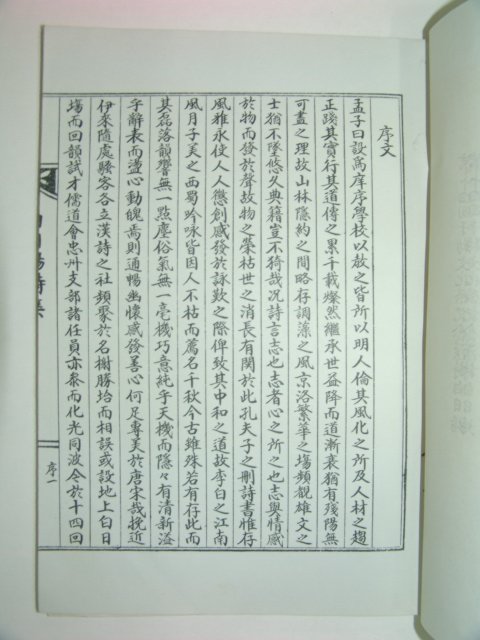 序文
孟子曰設爲庠序學校以敎之皆所以明人倫其風化之所及人材之趨
正踐其實行其道傳之累千載燦然繼承世益降而道漸衰猶有殘陽無
可盡之理故山林隱約之間略存調藻之風京洛繁華之塲頻觀雄文之
士猶不墜悠久典籍豈不猗哉况詩言志也志者心之所之也志與情感
於物而發於聲故物之榮枯世之消長有關於此孔夫子之刪詩書惟存
風雅永使人人懲創感發於詠歎之際俾致其中和之道故李白之江南
風月子美之西蜀吟咏皆因人不枯而薦名千秋今古雖殊若有存此而
其磊落韻響無一點塵俗氣無一毫機巧意純乎天機而隱々有清新溢
乎辭表而盪心動魄焉則通暢幽懷感發善心何足專美於唐宋哉挽近
伊來隨處騷客各立漢詩之社頻聚於名榭勝坮而相誤或設地上白日
塲而回韻試才儒道會忠州支部諸任員亦泰而化光同波令於十四回
序一